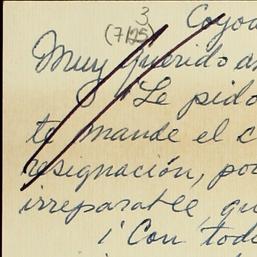 3
(7125)
Coyoa
Muy querido a
Le pido
te mande el c
resignación, po
irreparable, qu
¡Con tod